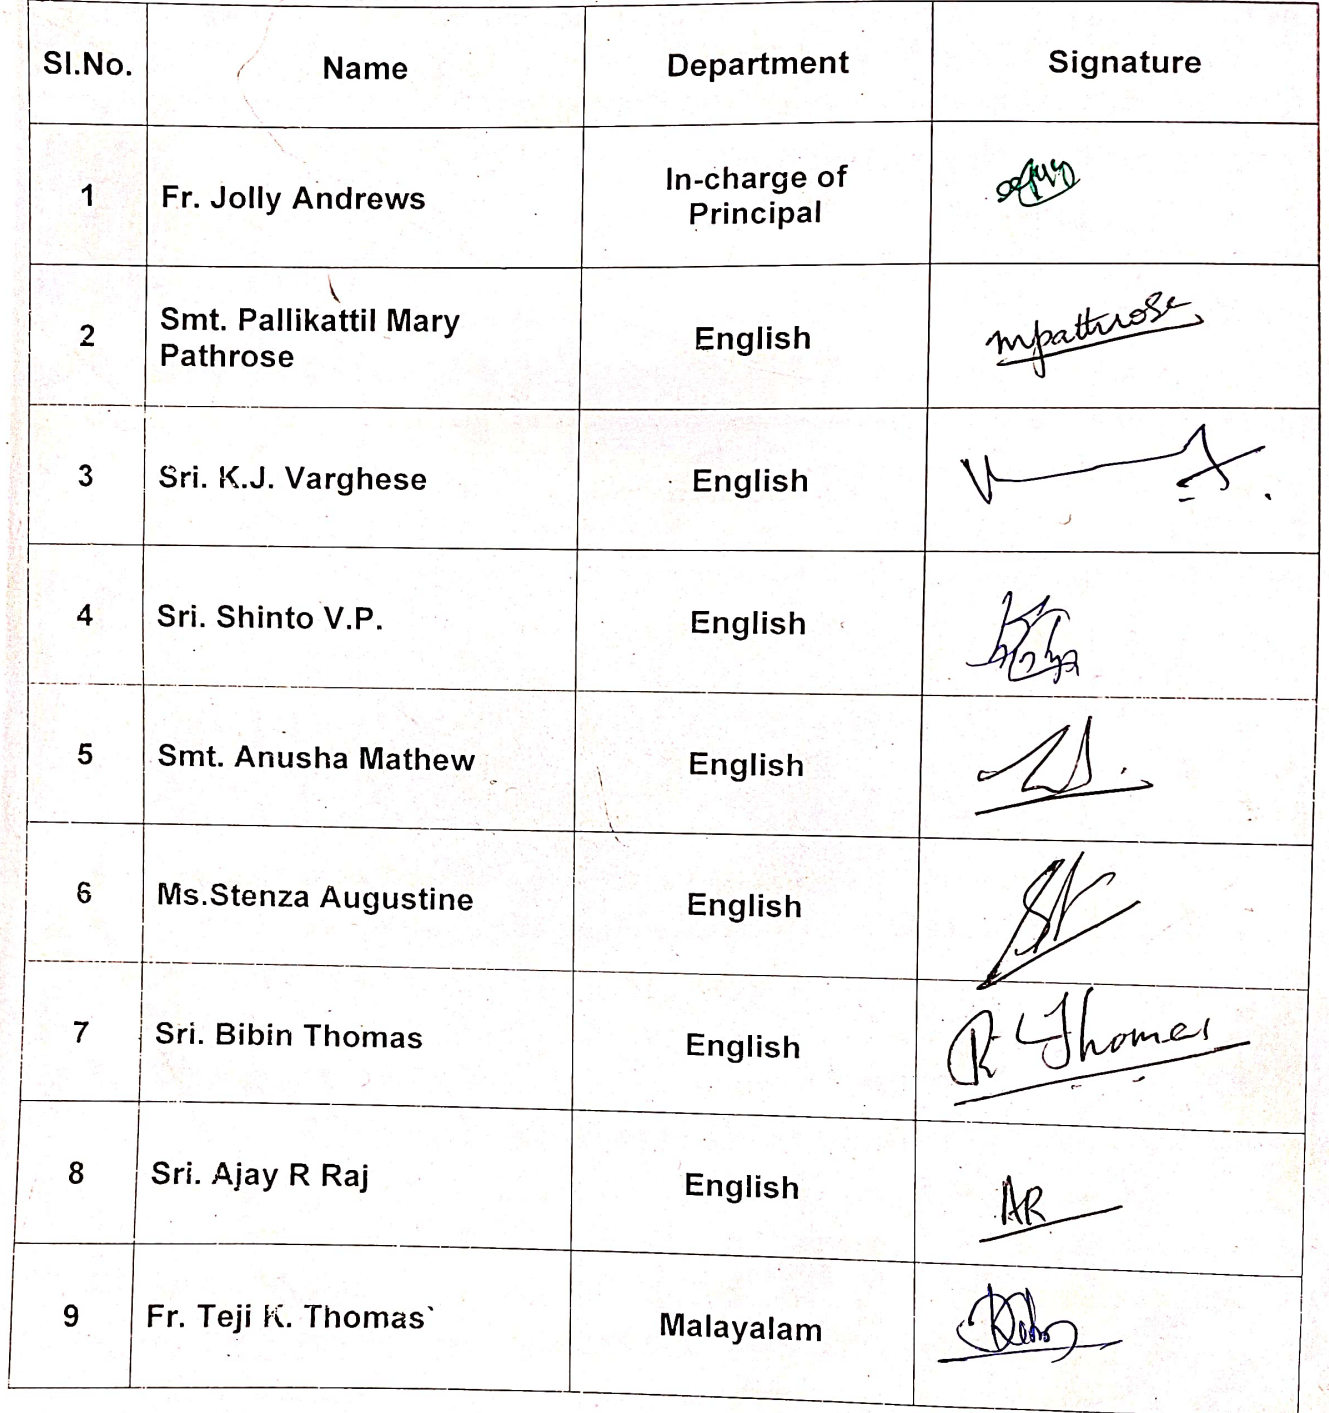 Sl.No. Name Department Signature
1 Fr. Jolly Andrews In-charge of
Principal
2 Smt. Pallikattil Mary
Pathrose English mpathrose
3 Sri. K.J. Varghese English
4 Sri. Shinto V.P. English
5 Smt. Anusha Mathew English
6 Ms.Stenza Augustine English
7 Sri. Bibin Thomas English Thomas
8 Sri. Ajay R Raj English AR
9 Fr. Teji K. Thomas Malayalam